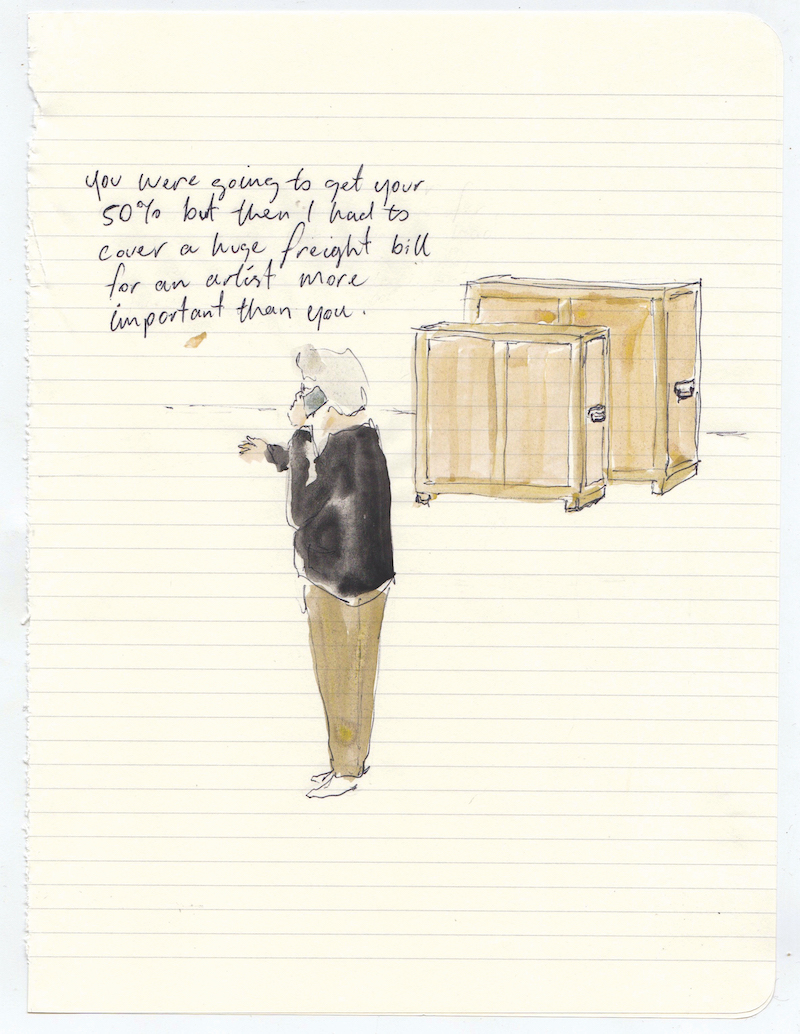 you were going to get your
50% but then I had to
cover a huge freight bill
for an artist more
important than you.